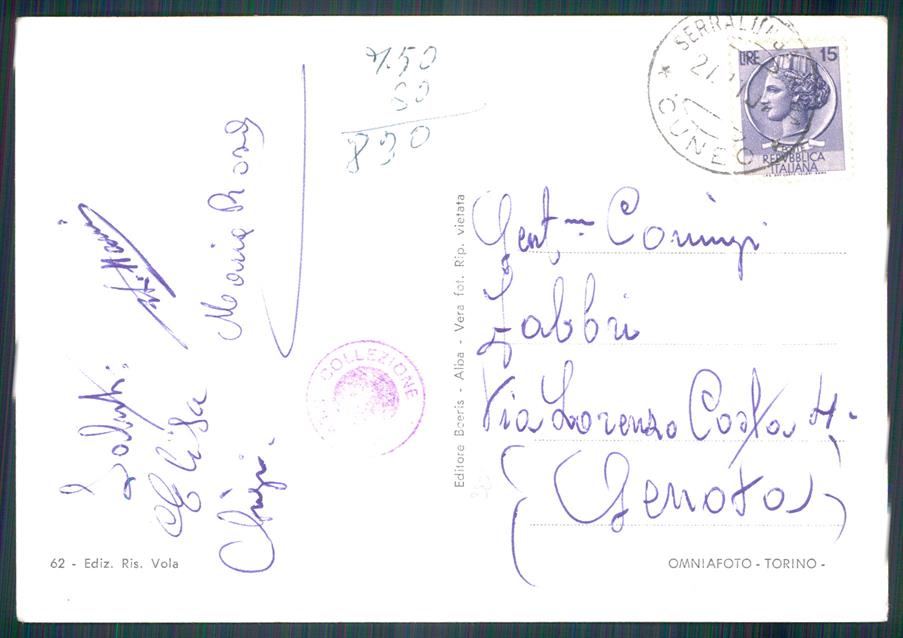 7.50
80
830
SERRALUNGA
CUNEO
LIRE 15
POSTE
REPVBBLICA
ITALIANA
Gent.me Coniugi
Fabbri
Via Lorenzo Costa 4.
(Genova)
Saluti:
Elisa
Maria Rosa
COLLEZIONE
Editore Boeris - Alba - Vera fot. Rip. vietata
62 - Ediz. Ris. Vola
OMNIAFOTO - TORINO -